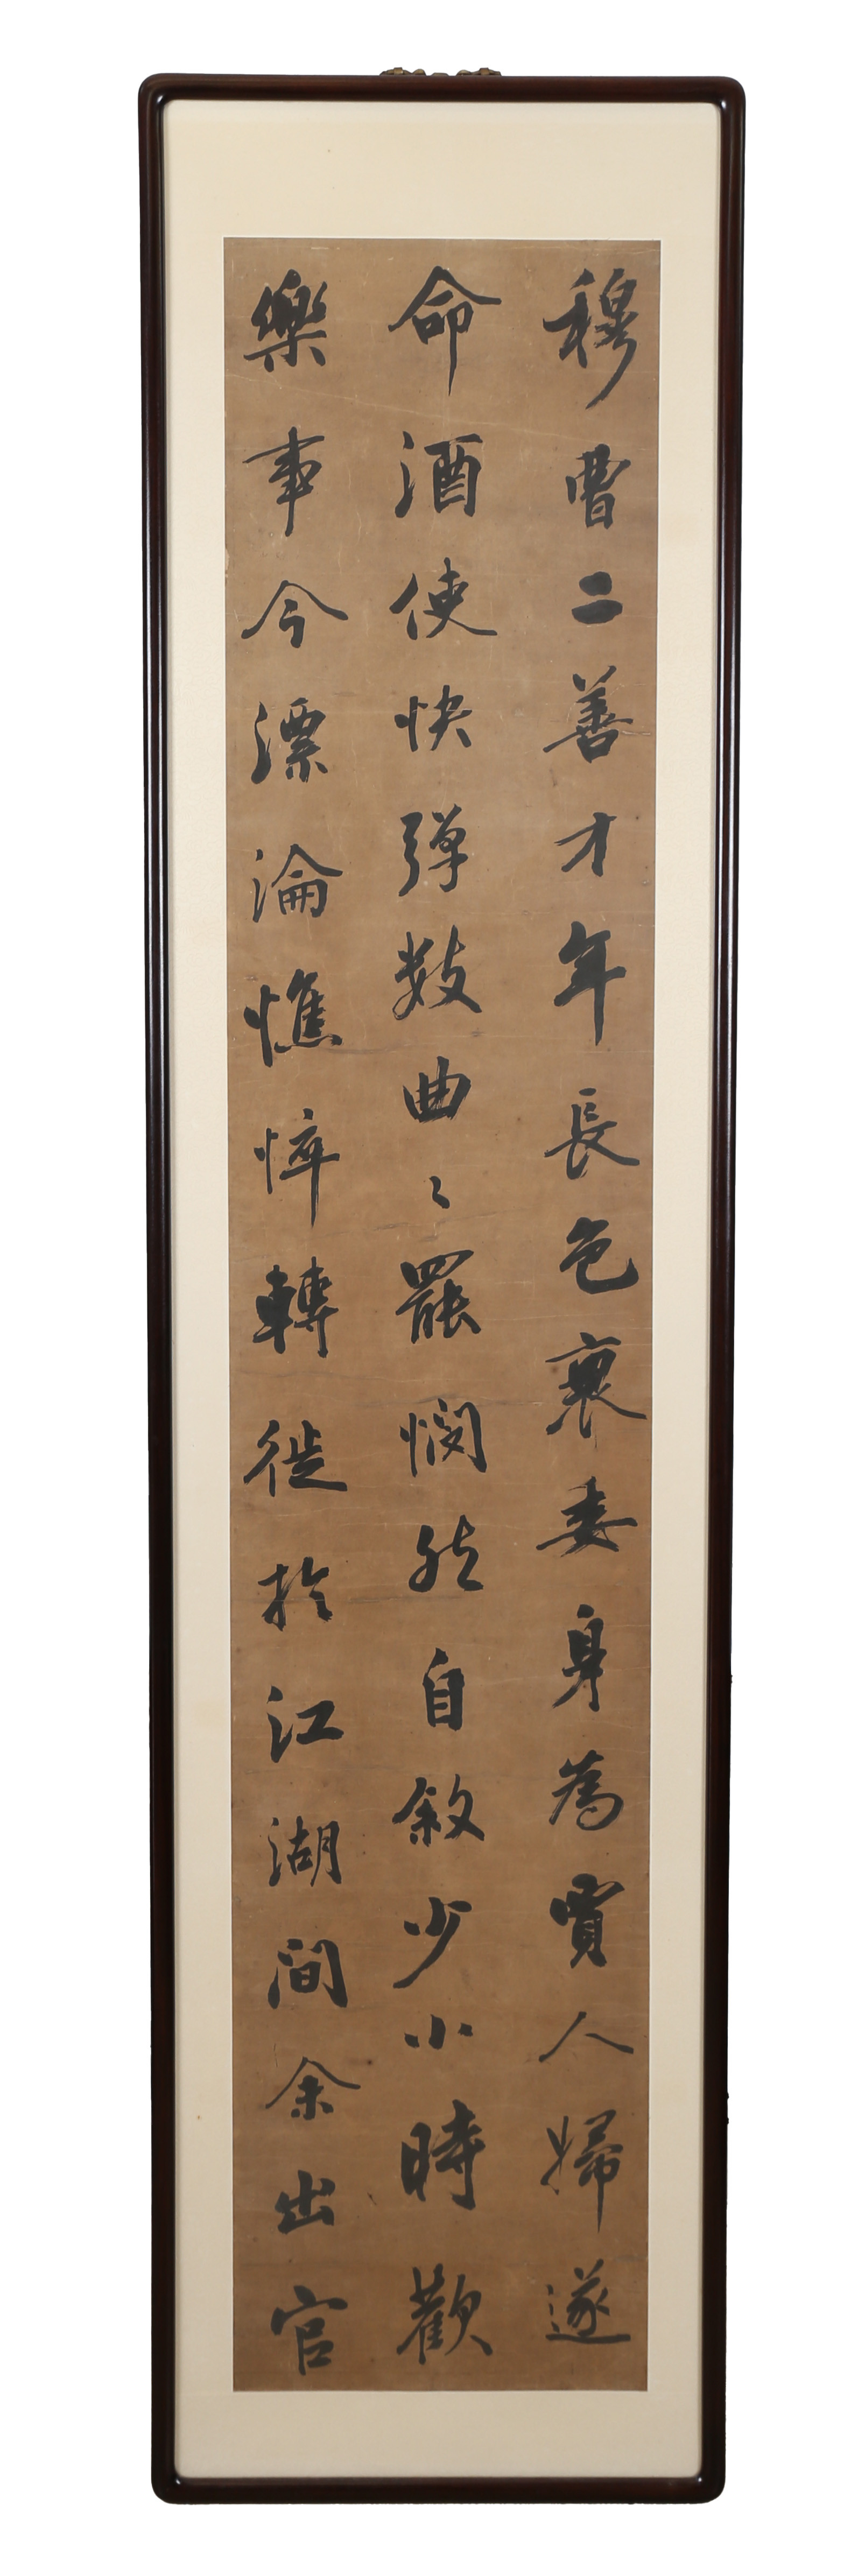 穆曹二善才年長色衰委身為賈人婦遂
命酒使快彈數曲〻罷憫然自敘少小時歡
樂事今漂淪憔悴轉徙於江湖間余出官